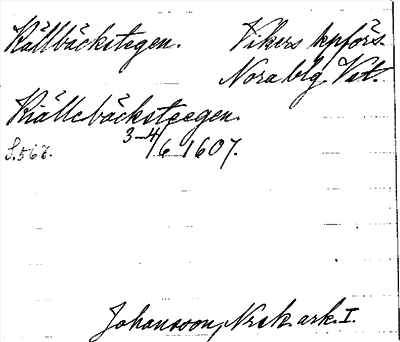 Källbäckstegen. Vikers kpförs.
Nora blg Vstm.
Kiällebäcksteegen.
S.567. 3-4/6 1607.
Johansson, Nrsk. ark. I.